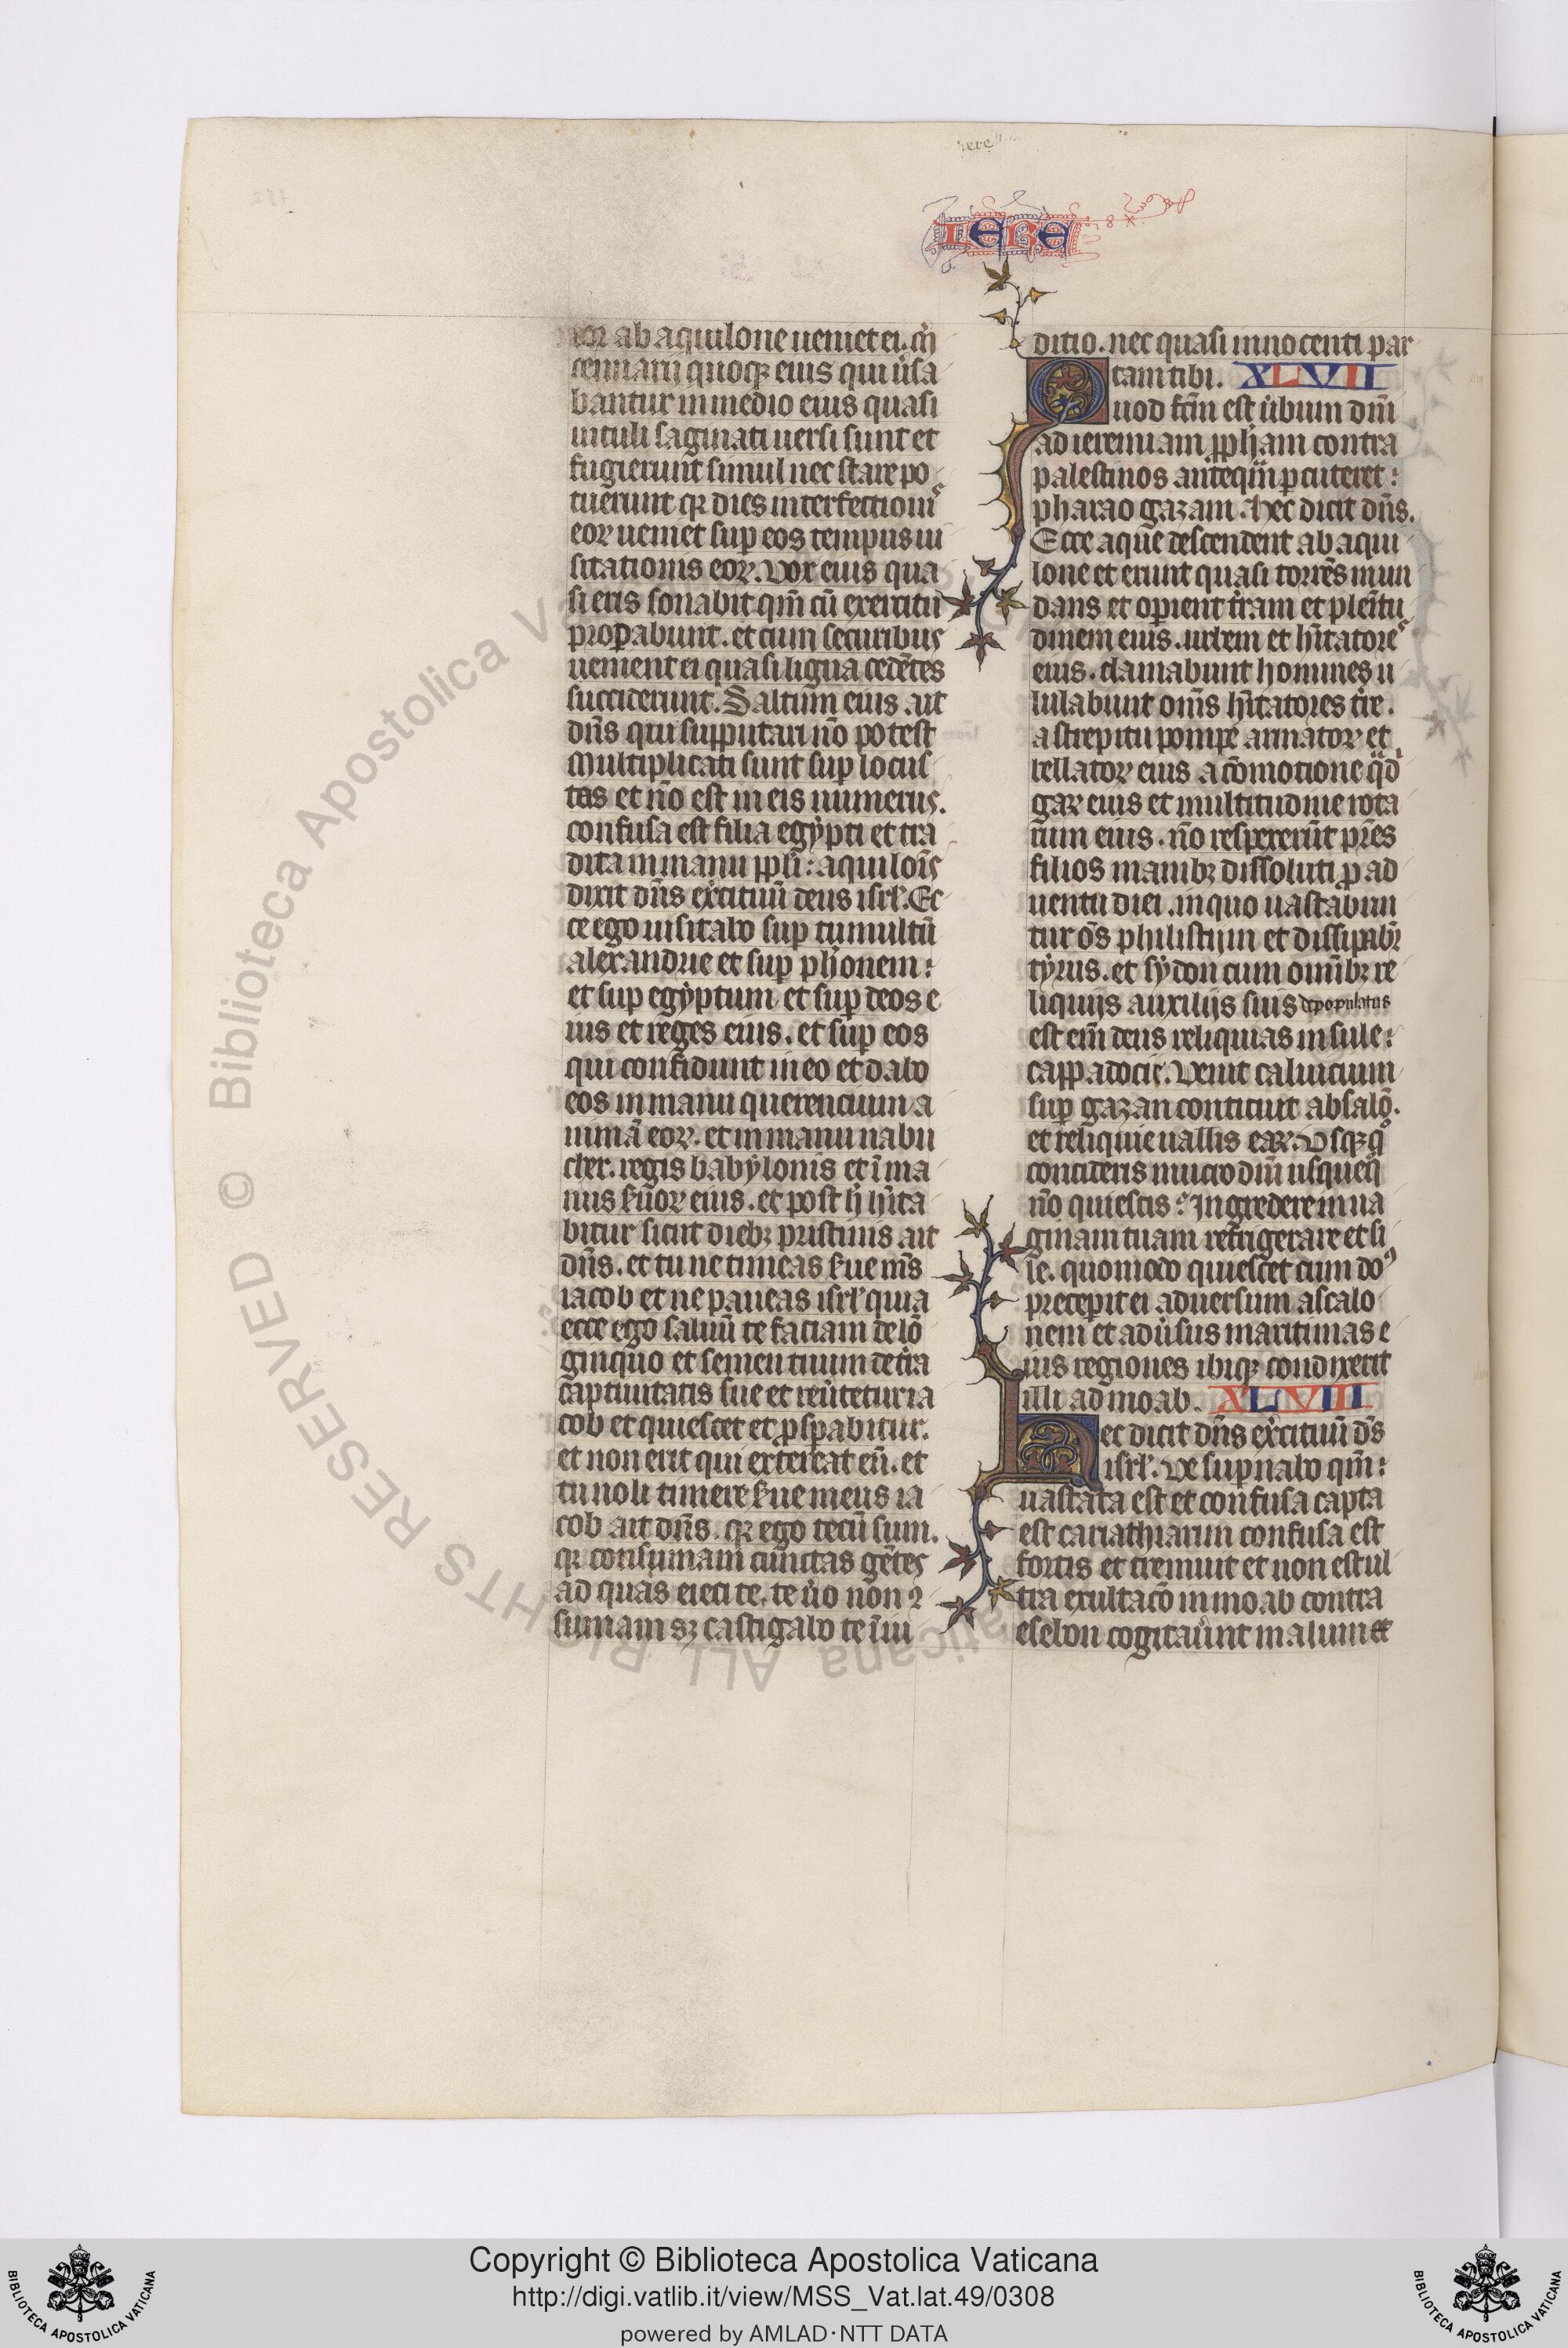 iere
IERE
tor ab aquilone ueniet ei. m̃
cennarij quoqꝫ eius qui ũsa
bantur in medio eius quasi
uituli saginati uersi sunt et
fugierunt simul nec stare po
tuerunt qꝛ dies interfectionis
eoꝝ ueniet sup̱ eos tempus ui
sitationis eoꝝ. Vox eius qua
si eris sonabit qm̃ cũ exercitu
prop̱abunt. et cum securibus
uenient ei quasi ligua cedẽtes
succiderunt. Saltum eius ait
dñs qui supputari nõ potest
Multiplicati sunt sup̱ locus
tas et nõ est in eis numerus.
confusa est filia egypti et tra
dita in manu ppłi: aquilois̃
dixit dñs exc̃ituũ deus isrł. Ec
ce ego uisitabo sup̱ tumultũ
alexandrie et sup̱ phõnem:
et sup̱ egyptum et sup̱ deos e
ius et reges eius. et sup̱ eos
qui confidunt in eo et dabo
eos in manu querencium a
nimã eoꝝ. et in manu nabu
cher. regis babylonis et ĩ ma
nus ẜuoꝝ eius. et post h̃ hĩta
bitur sicut diebꝫ pristinis ait
dñs. et tu ne timeas ẜue m̃s
iacob et ne paueas isrł quia
ecce ego saluũ te faciam de lõ
ginquo et semen tuum de tr̃a
captiuitatis sue et reũtetur ia
cob et quiescet et ꝓsp̱abitur.
et non erit qui exterreat eũ. et
tu noli timere ẜue meus ia
cob ait dñs. qꝛ ego tecũ sum.
qꝛ consumam cũnctas gẽtes
ad quas eieci te. te ũo non ꝯ
sumam sꝫ castigabo te ĩ iu
ditio. nec quasi innocenti par
cam tibi. XLVII
Quod fcm̃ est ũbum dñi
ad ieremiam ꝓpħam contra
palestinos anteqm̃ p̱cuteret:
pharao gazam. hec dicit dñs.
Ecce aque descendent ab aqui
lone et erunt quasi torrẽs inun
dans et op̱ient tr̃am et plenitu
dinem eius. urbem et hĩtatores
eius. clamabunt homines u
lulabunt om̃s hĩtatores tr̃e.
a strepitu pompe armatoꝝ et
bellatoꝝ eius a cõmotione qͣd
gaꝝ eius et multitudine rota
rum eius. nõ respexerũt pr̃es
filios manibꝫ dissoluti ꝓ ad
uentu diei. in quo uastabun
tur om̃s philistijm et dissipabr̃
tyrus. et sydon cum omĩbꝫ re
liquijs auxilijs suis depopulatus
est em̃ deus reliquias insule:
cappadocie. Venit caluicium
sup̱ gazan conticuit absalõ.
et reliquie uallis eaꝝ. Vsqꝫ qͦ
concideris mucro dñi usquequo
nõ quiescis: Ingredere in ua
ginam tuam refrigerare et si
le. quomodo quiescet cum do ꝰ
precepit ei aduersum ascalo
nem et adũsus maritimas e
ius regiones ibiqꝫ condixerit
illi ad moab. XLVIII
Hec dicit dñs exc̃ituũ ds̃
isrł. Ve sup̱ nabo qm̃:
uastata est et confusa capta
est cariathiarim confusa est
fortis et tremuit et non est ul
tra exultacõ in moab contra
esebon cogitaũnt malum et
© Biblioteca Apostolica Vaticana ALL RIGHTS RESERVED
BIBLIOTECA APOSTOLICA VATICANA
Copyright © Biblioteca Apostolica Vaticana
http://digi.vatlib.it/view/MSS_Vat.lat.49/0308
powered by AMLAD·NTT DATA
BIBLIOTECA APOSTOLICA VATICANA